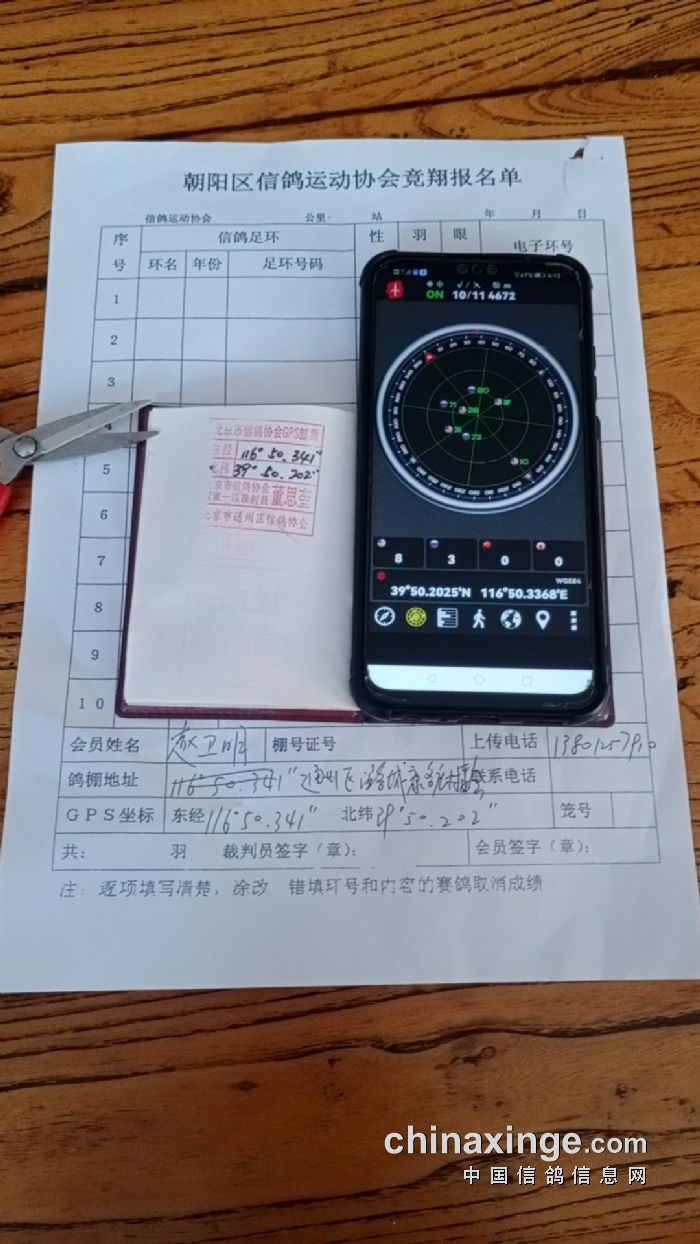 朝阳区信鸽运动协会竞翔报名单
信鸽运动协会 公里· 站 年 月 日
序号 信鸽足环 性 羽 眼 电子环号
环名 年份 足环号码
1
2
3
4
5
6
7
8
9
10
北京市信鸽协会GPS部章
东经 116°50.341"
北纬 39°50.202"
北京市信鸽协会
国家一级裁判员 董思奎
北京市通州区信鸽协会
ON 10/11 4672
80
71
28
31
73
10
8 3 0 0
WGS84
39°50.2025'N 116°50.3368'E
会员姓名 赵卫明 棚号证号 上传电话
鸽棚地址 116°50.341" 通州区 联系电话
GPS坐标 东经116°50.341" 北纬39°50.202" 笼号
共: 羽 裁判员签字(章): 会员签字(章):
注: 逐项填写清楚,涂改 错填环号和内容的赛鸽取消成绩
chinaxinge.com
中国信鸽信息网